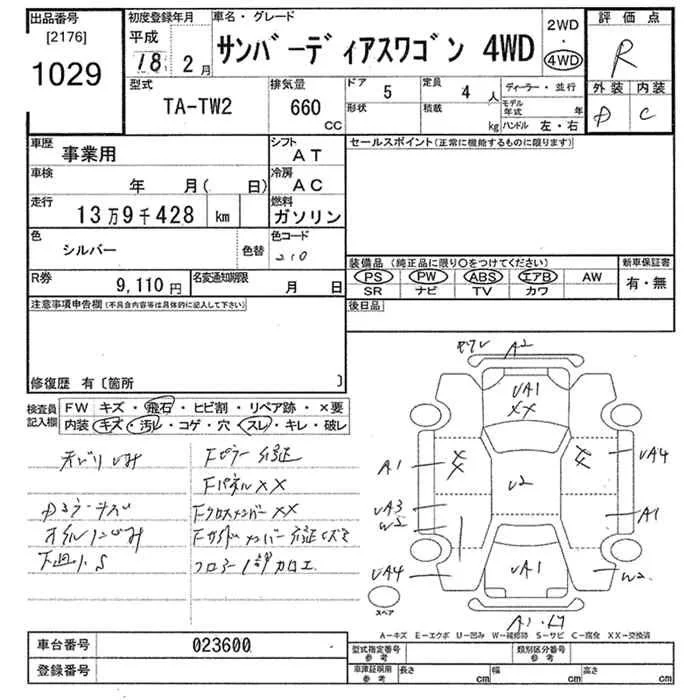 出品番号
[2176]
1029
初度登録年月
平成
18 2月
車名・グレード
サンバーディアスワゴン 4WD
2WD
・
4WD
評価点
R
外装 内装
D C
型式
TA-TW2
排気量
660
CC
ドア 5
定員 4 人
形状
積載 kg
ディーラー・並行
モデル年式 年
ハンドル 左・右
車歴 事業用
シフト AT
セールスポイント(正常に機能するものに限ります)
車検 年 月( 日)
冷房 AC
走行 13万9千428 km
燃料 ガソリン
色 シルバー
色替
色コード 210
装備品(純正品に限り○をつけてください)
新車保証書
PS PW ABS エアB AW
有・無
SR ナビ TV カワ
R券 9,110円
名変通知期限 月 日
後日品
注意事項申告欄(不具合内容等は具体的に記入して下さい)
修復歴 有〔箇所 〕
検査員記入欄
FW キズ・飛石・ヒビ割・リペア跡・×要
内装 キズ・汚レ・コゲ・穴・スレ・キレ・破レ
Fピラー修正
Fパネル××
Fクロスメンバー××
Fサイドメンバー修正キズ
オイルにじみ
下回りS
フロアー1部加工
A2
UA1
××
A1
UA4
U2
UA3
W2
A1
UA4
UA1
W2
スペア
A-キズ E-エクボ U-凹み W-補修跡 S-サビ C-腐食 XX-交換済
車台番号 023600
登録番号
型式指定番号
参考
類別区分番号
参考
車庫証明用
参考
長さ cm
幅 cm
高さ cm